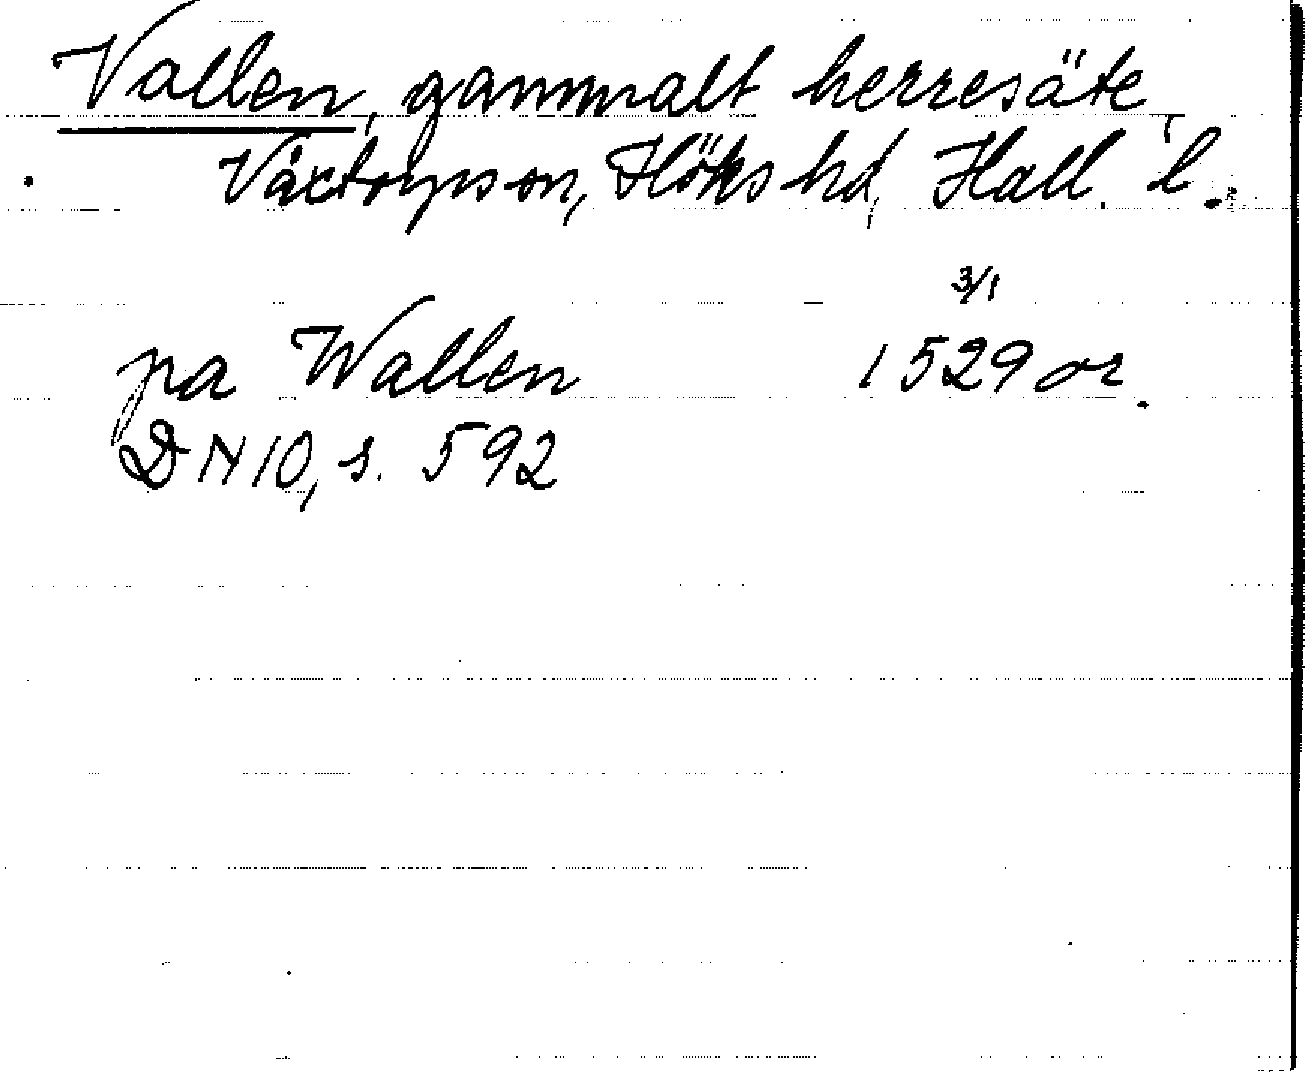 Vallen, gammalt herresäte,
Våxtorps sn, Höks hd, Hall. l.
3/1
pa Wallen 1529 or.
DN 10, s. 592